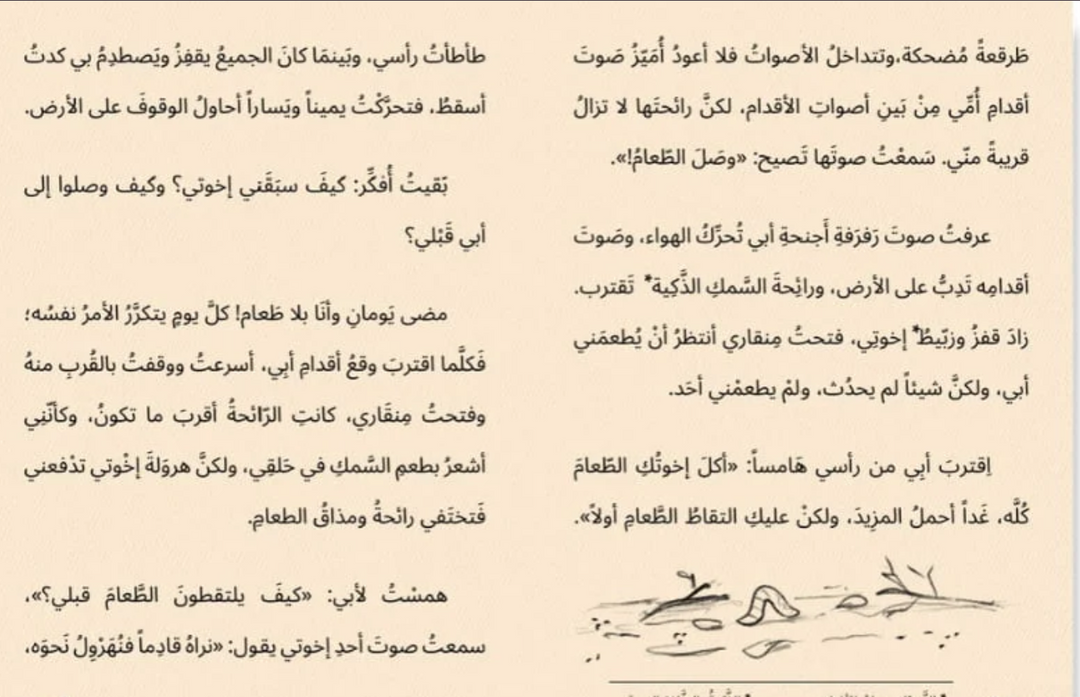 طَرقعةً مُضحكة،وتتداخلُ الأصواتُ فلا أعودُ أُمَيّزُ صَوتَ
أقدامِ أُمِّي مِنْ بَينِ أصواتِ الأقدام، لكنَّ رائحتَها لا تزالُ
قريبةً منّي. سَمعْتُ صوتَها تَصيح: «وصَلَ الطّعامُ!».
عرفتُ صوتَ رَفرَفةِ أَجنحةِ أبي تُحرِّكُ الهواء، وصَوتَ
أقدامِه تَدِبُّ على الأرض، ورائِحةَ السَّمكِ الذَّكِية* تَقترب.
زادَ قفزُ وزبّيطُ* إخوتِي، فتحتُ مِنقاري أنتظرُ أنْ يُطعمَني
أبي، ولكنَّ شيئاً لم يحدُث، ولمْ يطعمْني أحَد.
اِقتربَ أبِي من رأسي هَامساً: «أكلَ إخوتُكِ الطّعامَ
كُلَّه، غَداً أحملُ المزِيدَ، ولكنْ عليكِ التقاطُ الطَّعامِ أولاً».
طأطأتُ رأسي، وبَينمَا كانَ الجميعُ يقفِزُ ويَصطدِمُ بي كدتُ
أسقطُ، فتحرَّكْتُ يميناً ويَساراً أحاولُ الوقوفَ على الأرض.
بّقيتُ أُفكِّر: كيفَ سبَقَني إخوتي؟ وكيف وصلوا إلى
أبي قَبْلي؟
مضى يَومانِ وأنَا بلا طَعام! كلَّ يومٍ يتكرَّرُ الأمرُ نفسُه؛
فَكلَّما اقتربَ وقعُ أقدامِ أبِي، أسرعتُ ووقفتُ بالقُربِ منهُ
وفتحتُ مِنقَاري، كانتِ الرّائحةُ أقربَ ما تكونُ، وكأنّنِي
أشعرُ بطعمِ السَّمكِ في حَلقِي، ولكنَّ هروَلةَ إخْوتي تدْفعني
فَتختَفي رائحةُ ومذاقُ الطعامِ.
همسْتُ لأبي: «كيفَ يلتقطونَ الطَّعامَ قبلي؟»،
سمعتُ صوتَ أحدِ إخوتي يقول: «نراهُ قادِماً فنُهَرْوِلُ نَحوَه،